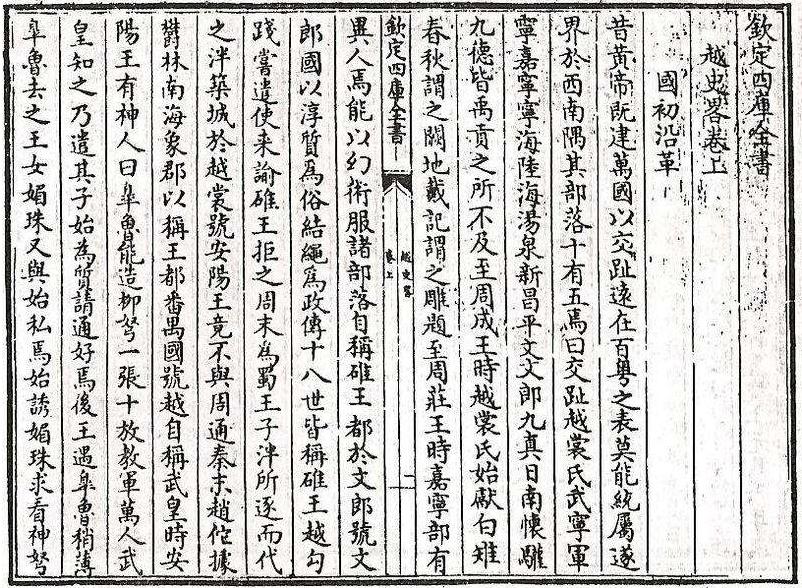 欽定四庫全書
越史略卷上
國初沿革
昔黃帝既建萬國以交趾遠在百粵之表莫能統屬遂
界於西南隅其部落十有五焉曰交趾越裳氏武寧軍
寧嘉寧寧海陸海湯泉新昌平文文郎九真日南懷驩
九德皆禹貢之所不及至周成王時越裳氏始獻白雉
春秋謂之闕地戴記謂之雕題至周莊王時嘉寧部有
欽定四庫全書
越史畧
卷上
一
異人焉能以幻術服諸部落自稱碓王都於文郎號文
郎國以淳質為俗結繩為政傳十八世皆稱碓王越勾
踐嘗遣使來諭碓王拒之周末為蜀王子泮所逐而代
之泮築城於越裳號安陽王竟不與周通秦末趙佗據
鬱林南海象郡以稱王都番禺國號越自稱武皇時安
陽王有神人曰皐魯能造柳弩一張十放教軍萬人武
皇知之乃遣其子始為質請通好焉後王遇皐魯稍薄
皐魯去之王女媚珠又與始私焉始誘媚珠求看神弩